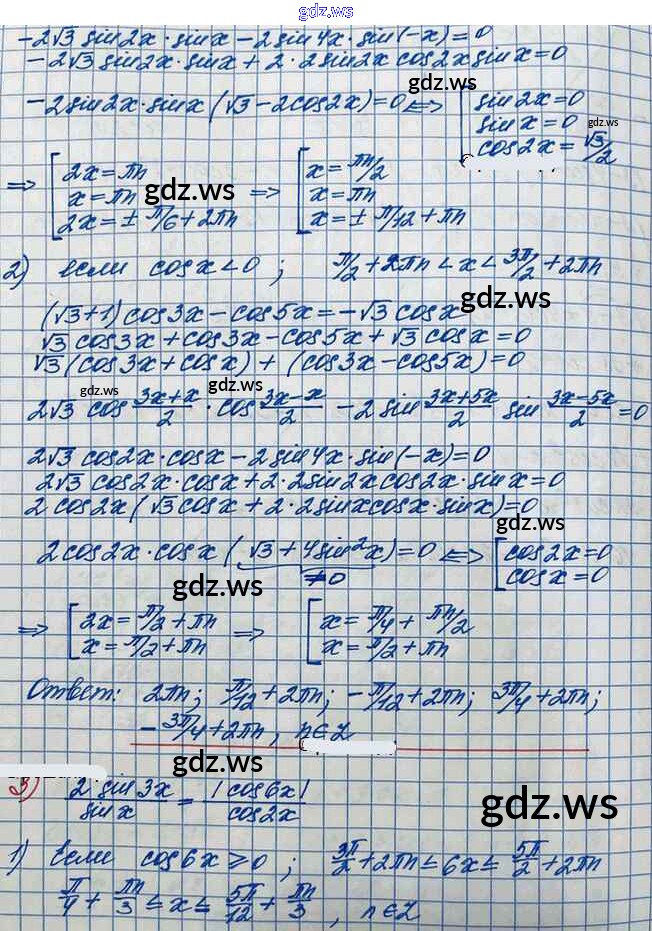 gdz.ws
-2√3 sin2x·sinx - 2sin4x·sin(-x)=0
-2√3 sin2x·sinx + 2·2sin2x cos2x sinx=0
gdz.ws
-2sin2x·sinx(√3-2cos2x)=0 <=> [ sin2x=0
sinx=0 gdz.ws
cos2x=√3/2
=> [ 2x=πn => [ x=πn/2
x=πn gdz.ws x=πn
2x=±π/6+2πn x=±π/12+πn
2) если cosx<0; π/2+2πn<x<3π/2+2πn
(√3+1)cos3x-cos5x=-√3cosx gdz.ws
√3cos3x+cos3x-cos5x+√3cosx=0
√3(cos3x+cosx)+(cos3x-cos5x)=0
gdz.ws gdz.ws
2√3 cos (3x+x)/2 · cos (3x-x)/2 - 2 sin (3x+5x)/2 sin (3x-5x)/2 =0
2√3cos2x·cosx-2sin4x·sin(-x)=0
gdz.ws
2√3cos2x·cosx+2·2sin2xcos2x·sinx=0
2cos2x(√3cosx+2·2sinxcosx·sinx)=0
gdz.ws
2cos2x·cosx(√3+4sin²x)=0 <=> [ cos2x=0
≠0 cosx=0
gdz.ws
=> [ 2x=π/2+πn => [ x=π/4+πn/2
x=π/2+πn x=π/2+πn
gdz.ws
Ответ: 2πn; π/12+2πn; -π/12+2πn; 3π/4+2πn;
-3π/4+2πn, n∈Z
gdz.ws
3) 2sin3x/sinx = |cos6x|/cos2x
gdz.ws
1) Если cos6x≥0; 3π/2+2πn≤6x≤5π/2+2πn
π/4+πn/3≤x≤5π/12+πn/3, n∈Z
gdz.ws